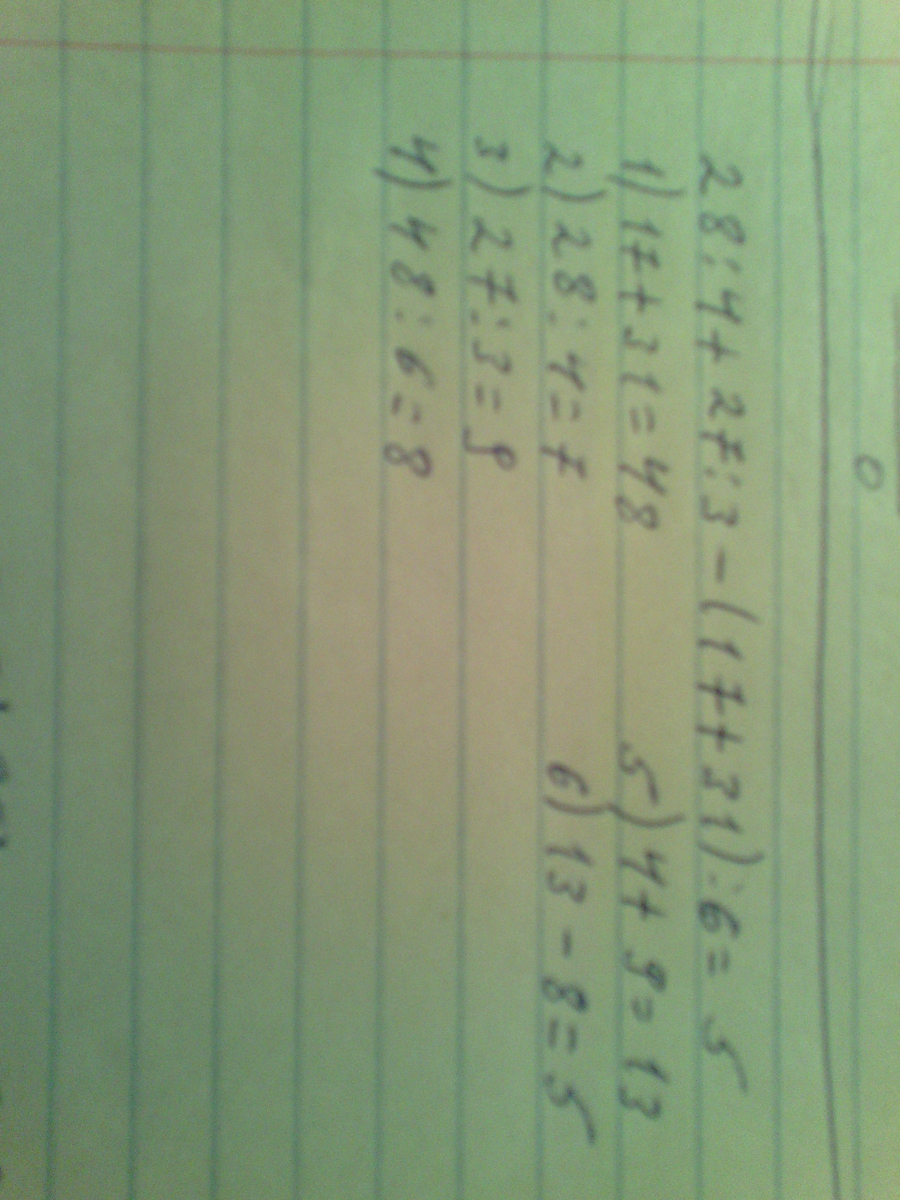 28:4+27:3-(17+31):6= 5
1) 17+31=48
2) 28:4=7
3) 27:3=9
4) 48:6=8
5) 4+9=13
6) 13-8=5